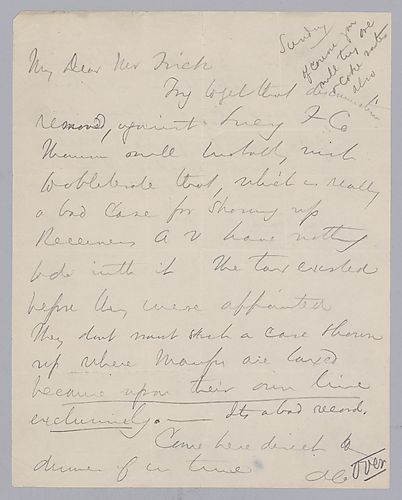 Sunday
of course you
will try one
coke rates
also
My Dear Mr Frick
Try to get that discrimination
removed, against Lucy F Co
will
that, which is really
a bad case for showing up
Receivers A V have nothing
to do with it The tax existed
before they were appointed
They dont want such a case shown
up where Manfrs are taxed
because upon their own line
exclusively. — Its a bad record.
Come here direct to
dinner if in time
AC
over